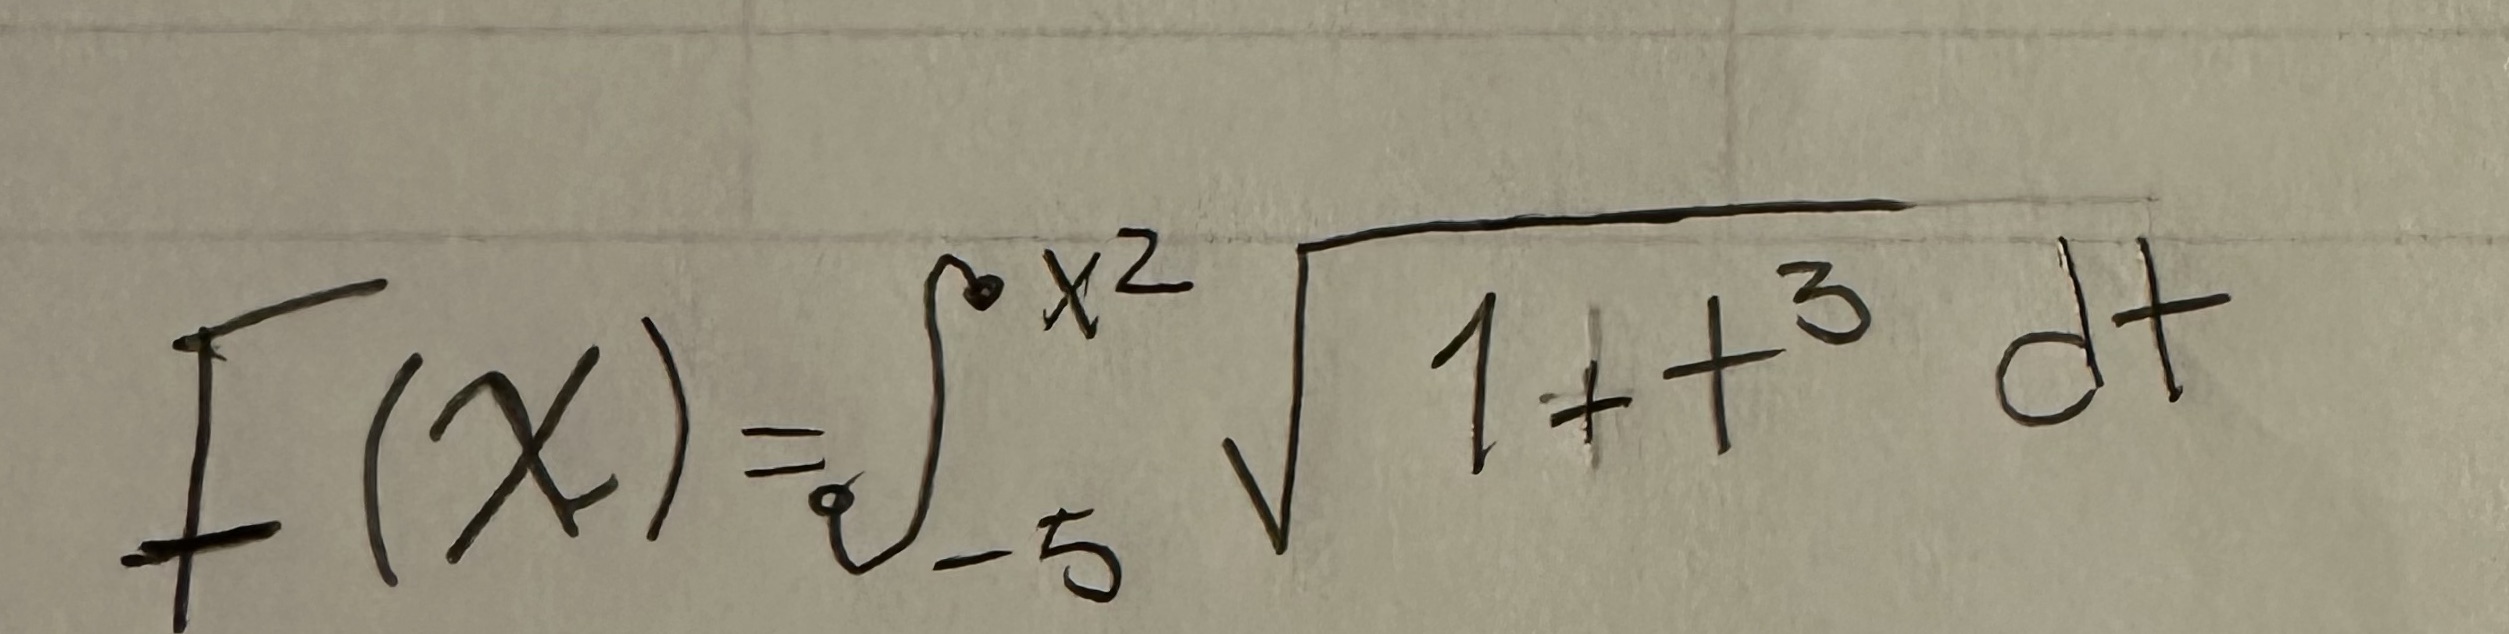 F(x) = ∫_{-5}^{x^2} √(1+t^3) dt